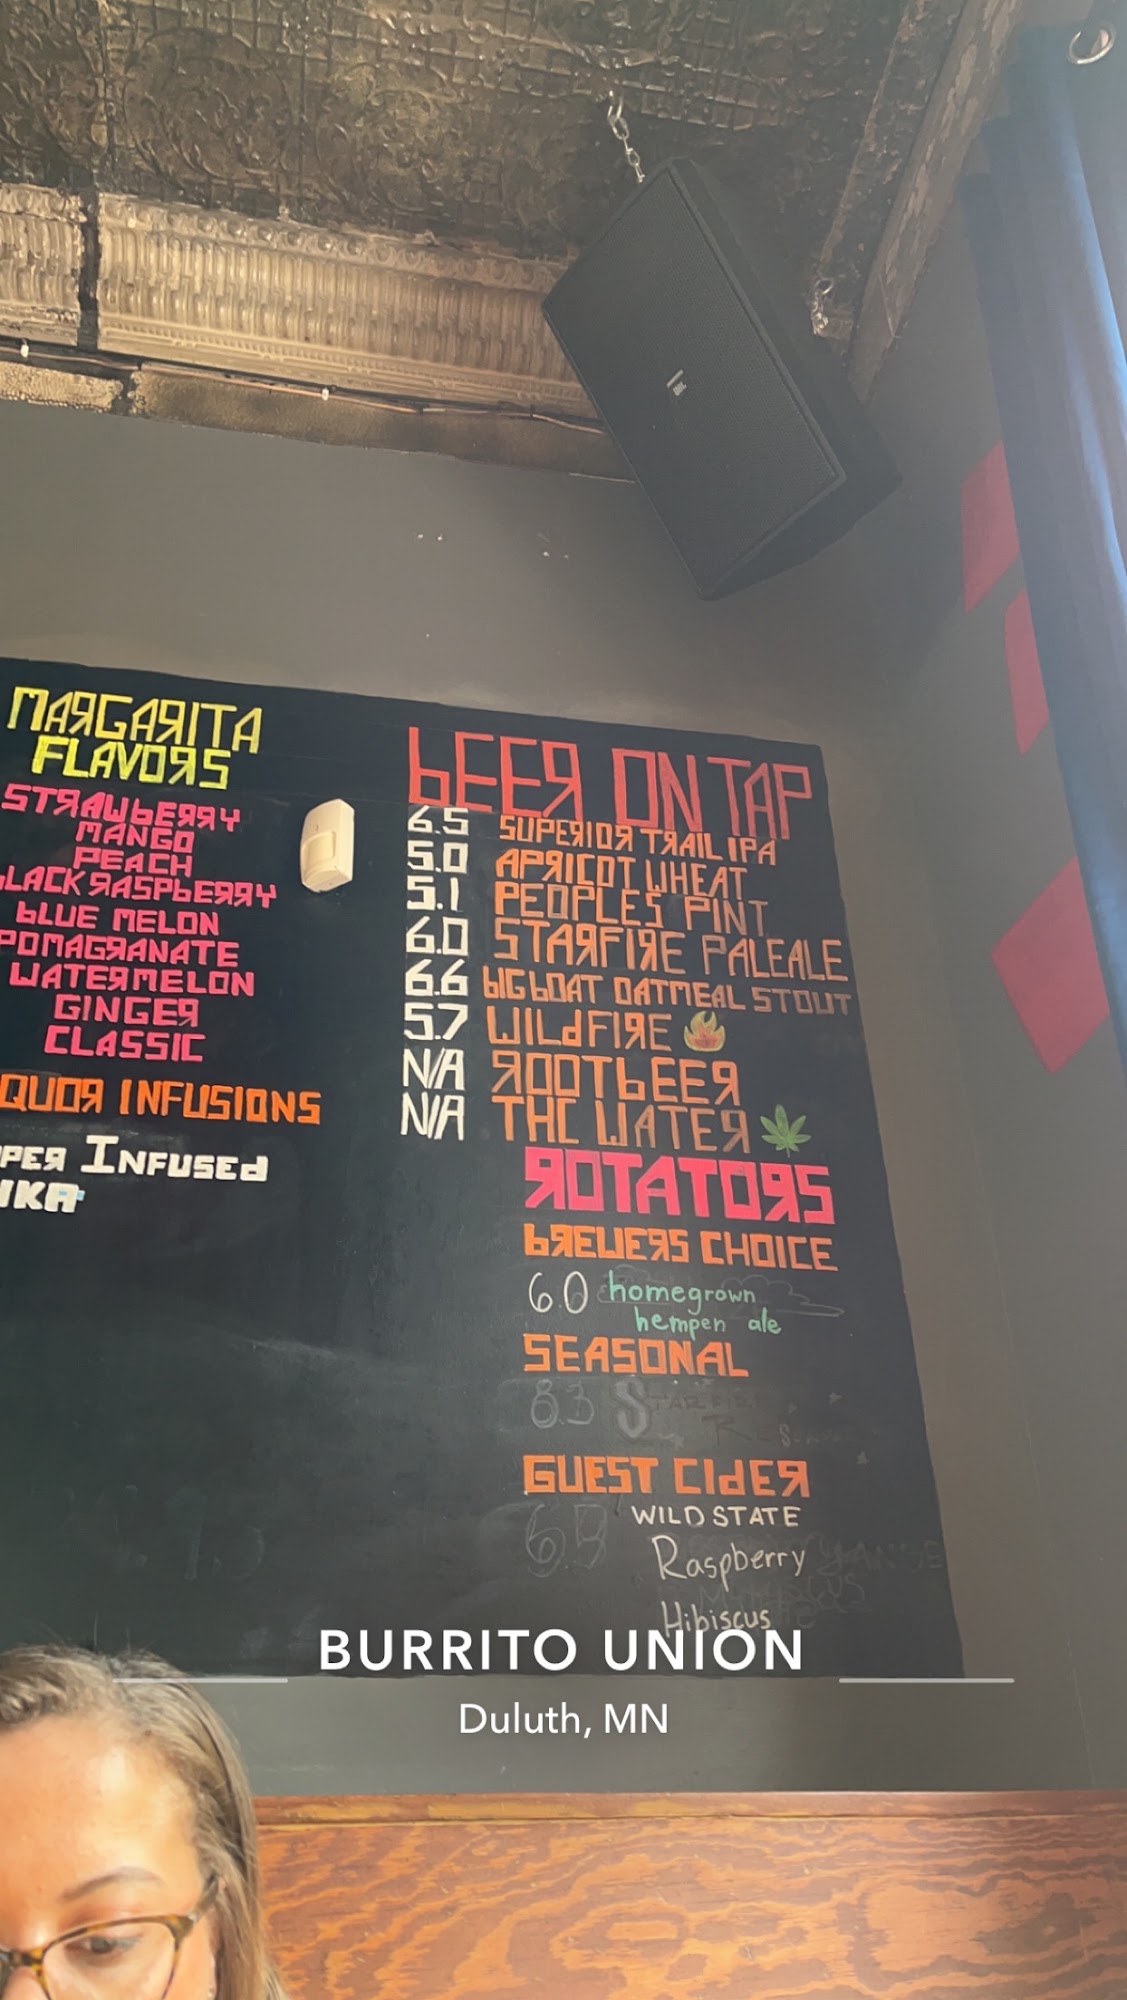 MARGARITA
FLAVORS
STRAWBERRY
MANGO
PEACH
BLACK RASPBERRY
BLUE MELON
POMAGRANATE
WATERMELON
GINGER
CLASSIC
QUOR INFUSIONS
PER INFUSED
BEER ON TAP
6.5 SUPERIOR TRAIL IPA
5.0 APRICOT WHEAT
5.1 PEOPLES PINT
6.0 STARFIRE PALE ALE
6.6 BIG BOAT OATMEAL STOUT
5.7 WILDFIRE
N/A ROOTBEER
N/A THC WATER
ROTATORS
BREWERS CHOICE
6.0 homegrown
hempen ale
SEASONAL
8.3
GUEST CIDER
WILD STATE
Raspberry
Hibiscus
BURRITO UNION
Duluth, MN
JBL